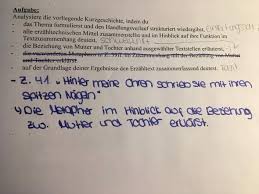 Aufgabe:
Analysiere die vorliegende Kurzgeschichte, indem du
- das Thema formulierst und den Handlungsverlauf strukturiert wiedergibst,
- alle erzähltechnischen Mittel zusammenstellst und im Hinblick auf ihre Funktion im
Textzusammenhang deutest,
- die Beziehung von Mutter und Tochter anhand ausgewählter Textstellen erläuterst,
und Tochter erklärst.
- auf der Grundlage deiner Ergebnisse den Erzähltext zusammenfassend deutest.
- Z. 41 "Hinter meine Ohren schrieb sie mit ihren
spitzen Nägeln"
Die Metapher im Hinblick auf die Beziehung
zw. Mutter und Tochter erklärst.